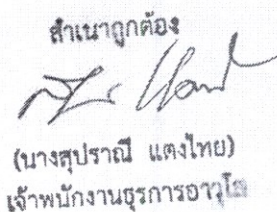 สำเนาถูกต้อง
(นางสุปราณี แตงไทย)
เจ้าพนักงานธุรการอาวุโส